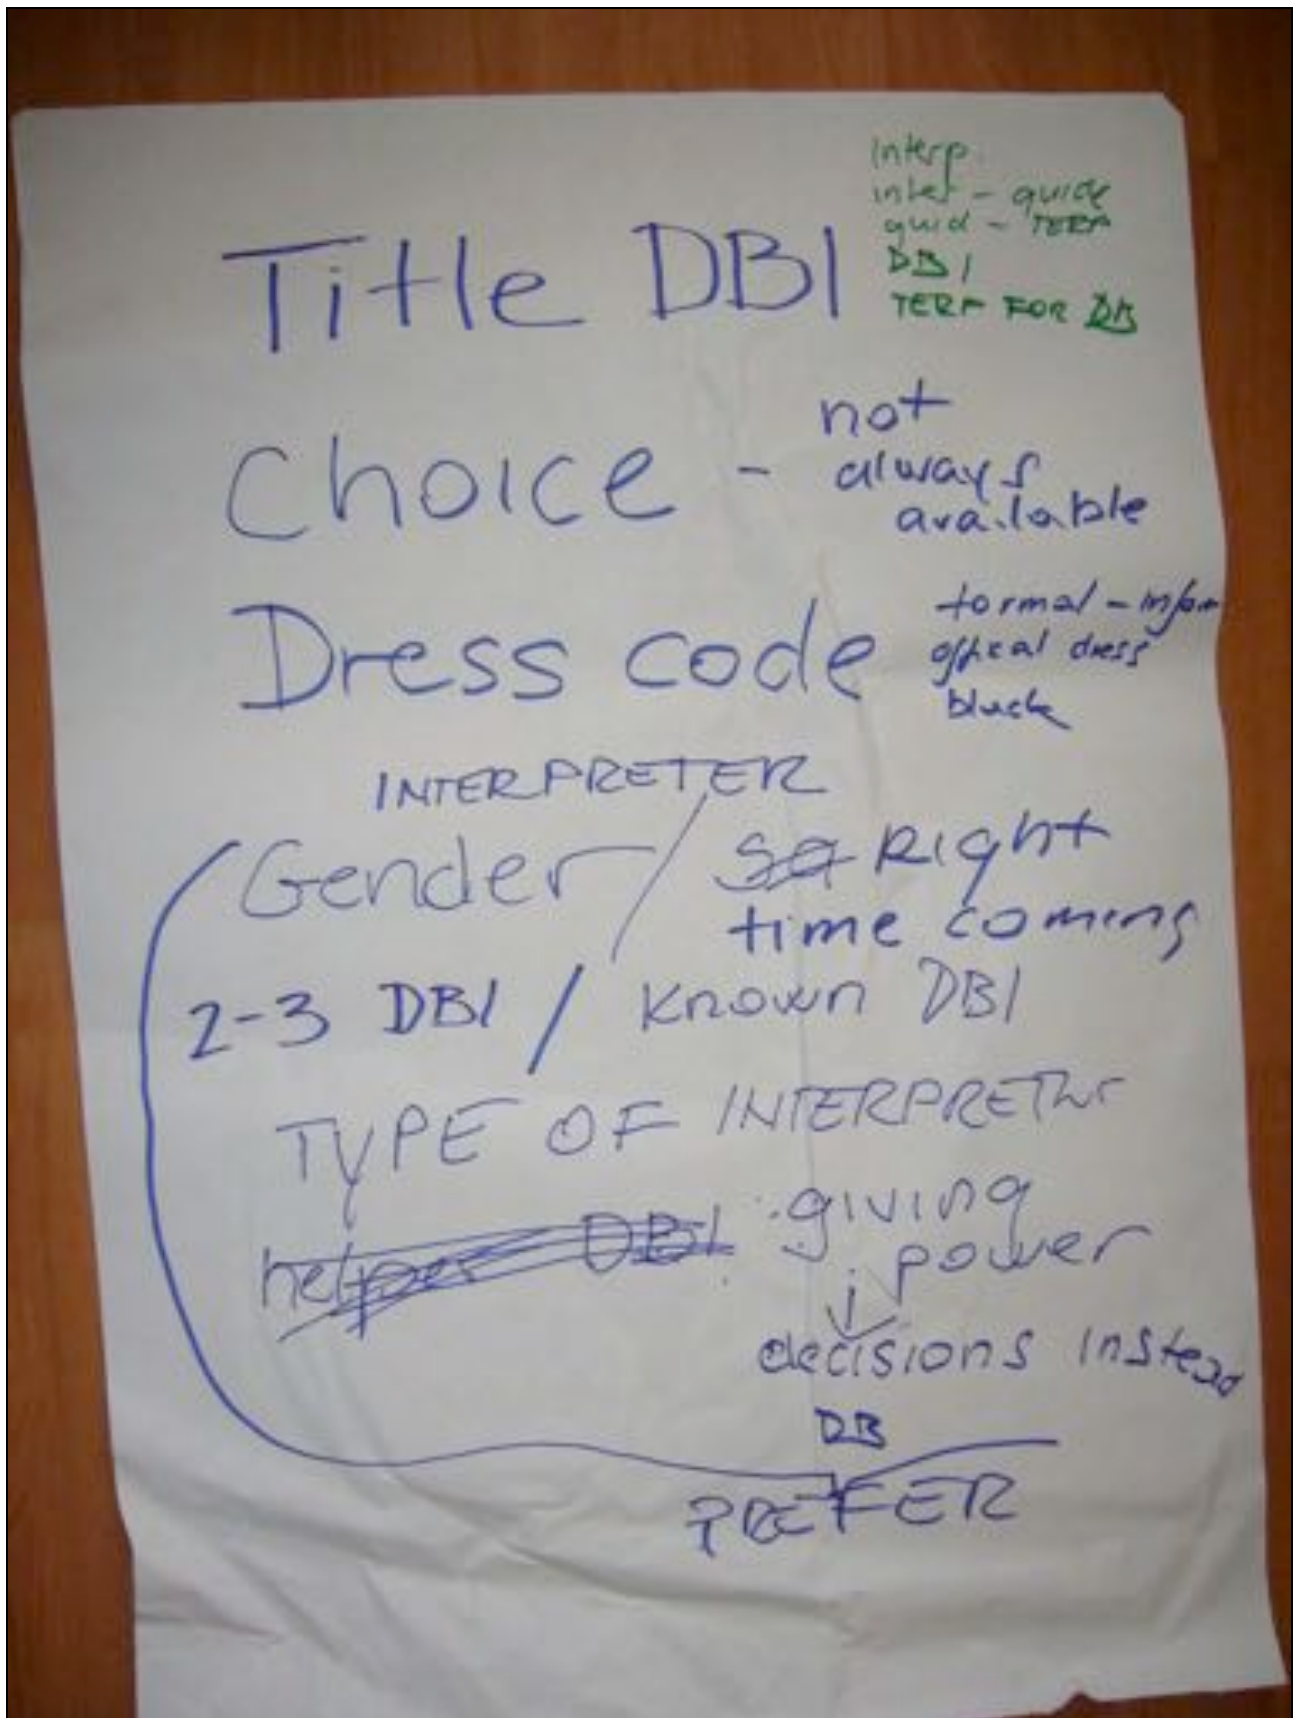 Interp.
inter - guide
guid - TERP
Title DBI
DBI
TERP FOR DB
Choice - not
always
available
Dress code
formal - infor
offical dress
black
INTERPRETER
Gender / Right
time coming
2-3 DBI / Known DBI
TYPE OF INTERPRETER
helper DBI : giving
power
decisions instead
DB
PREFER